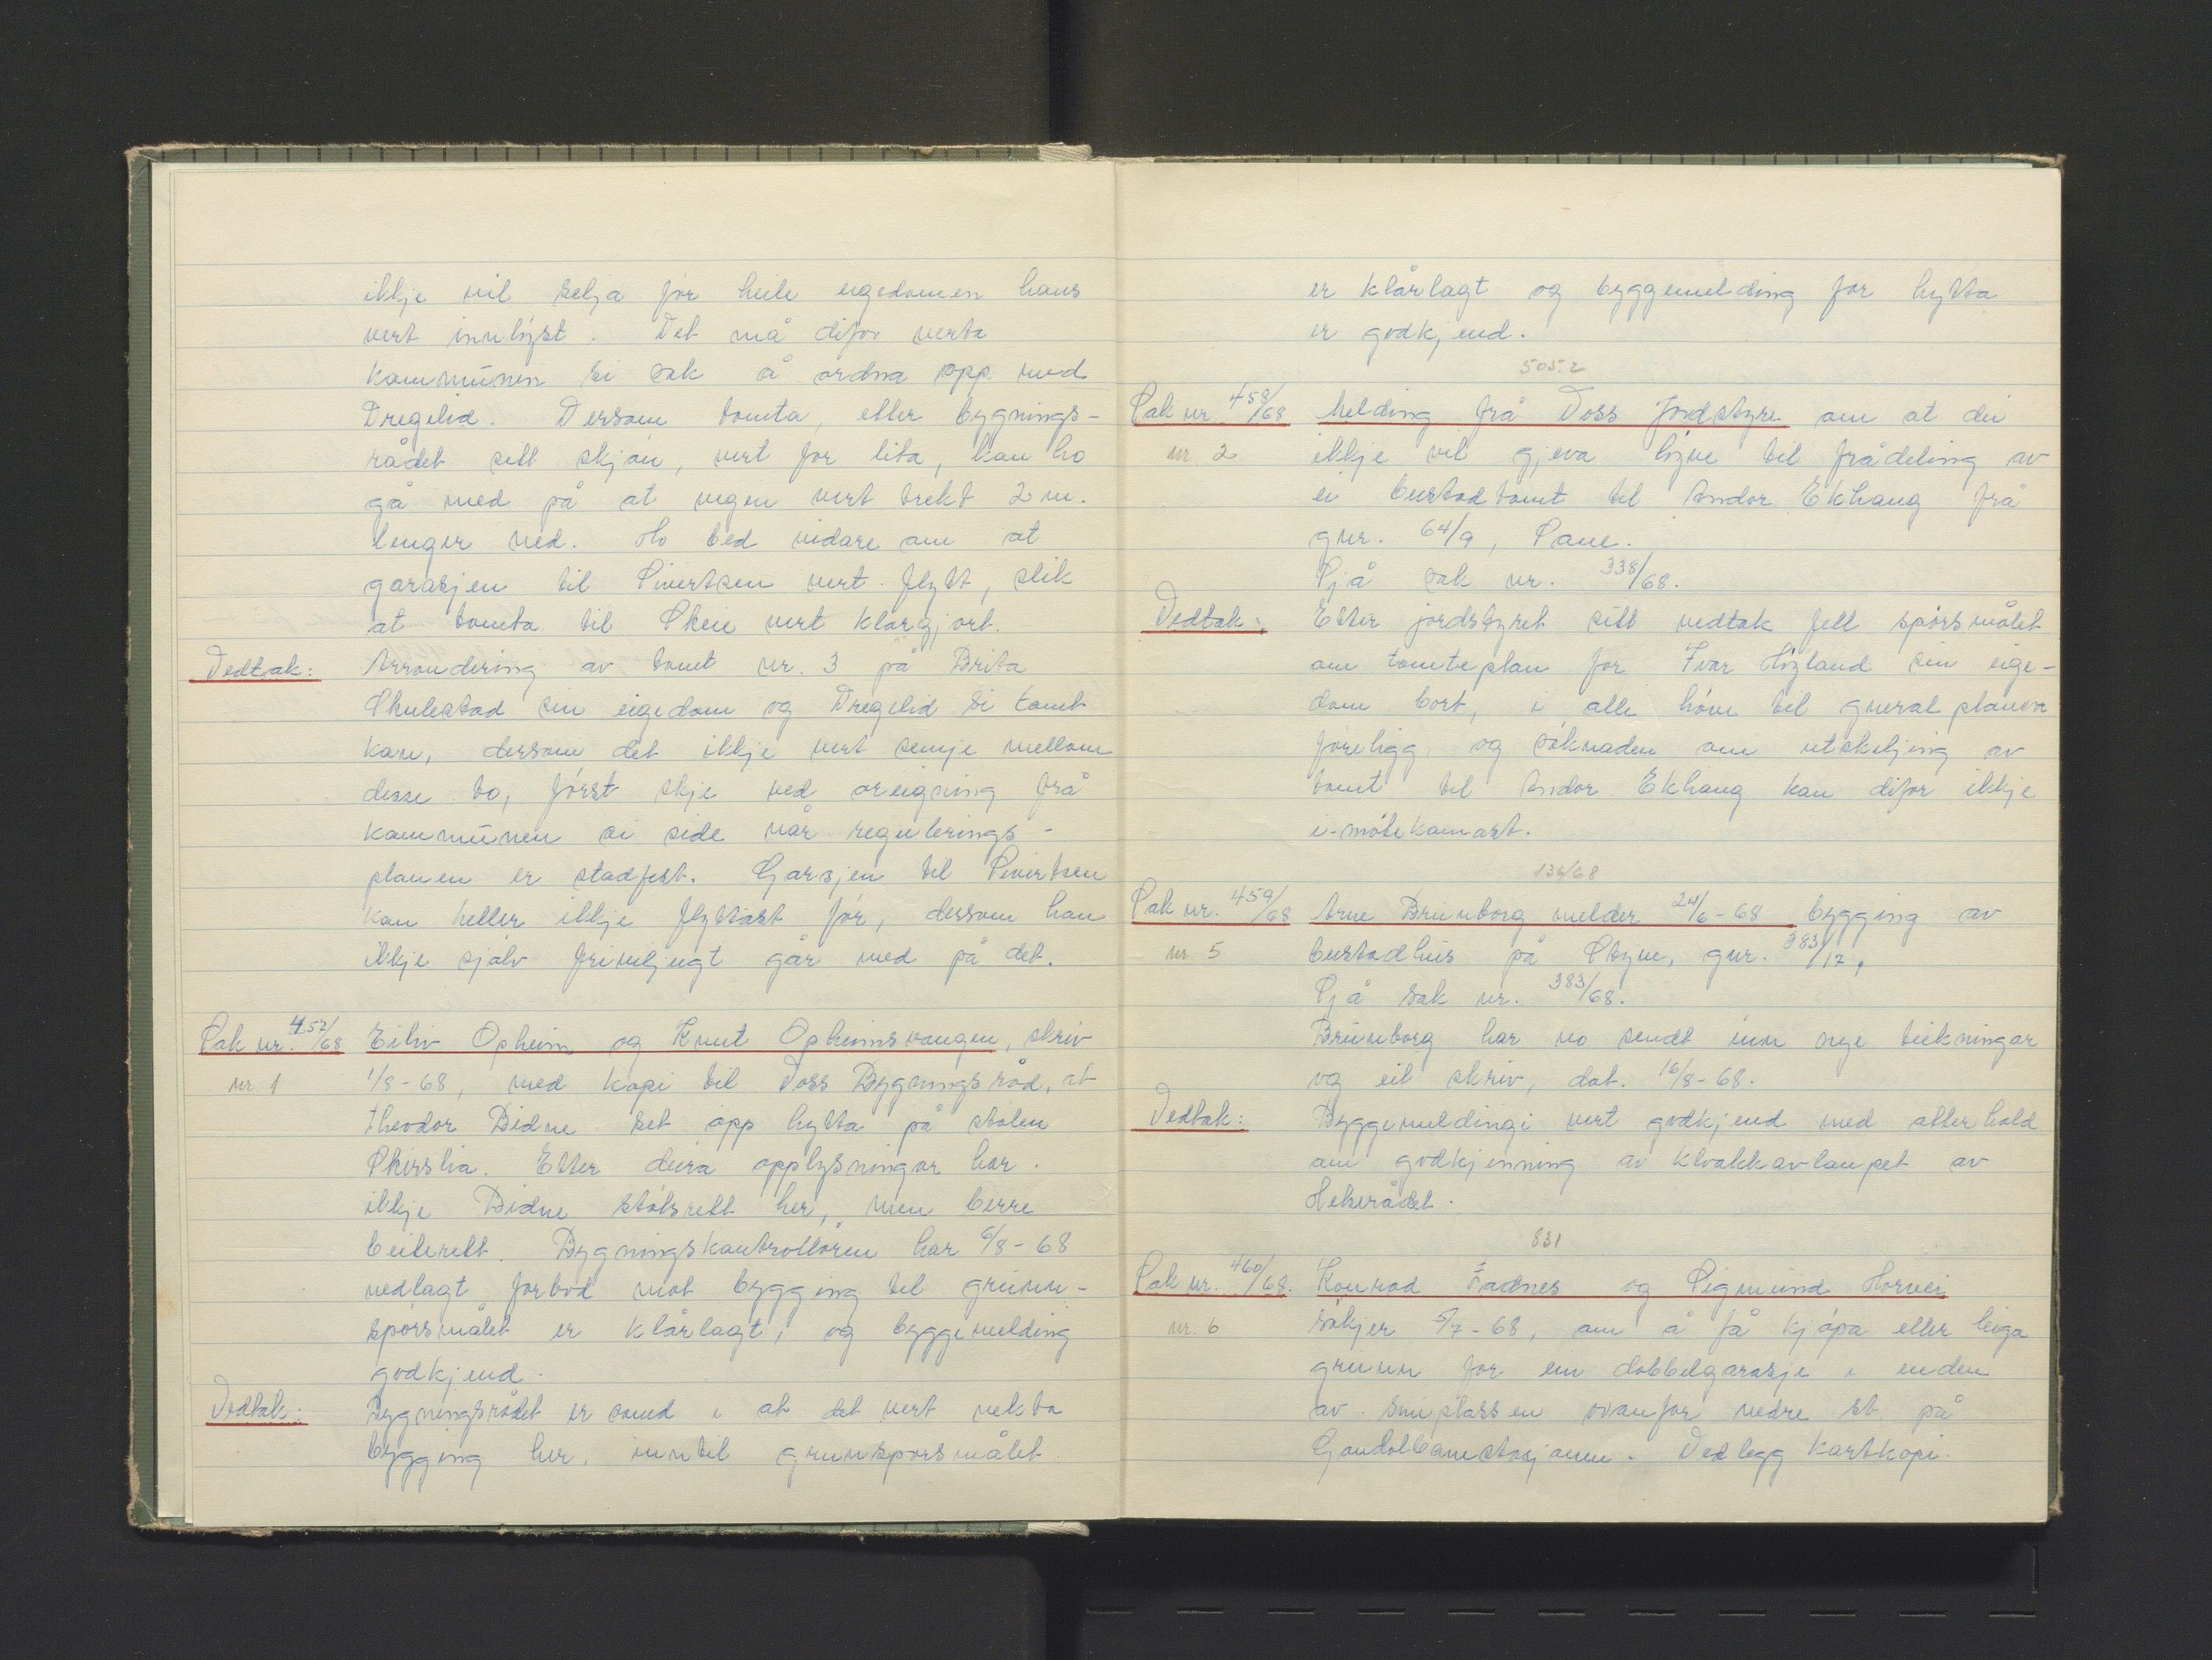 ikkje vil selja før heile eigedomen hans
vert innløyst. Det må difor verta
kommunen si sak å ordna opp med
Dregelid. Dersom tomta, etter bygnings-
rådet sitt skjøn, vert for lita, kan ho
gå med på at vegen vert trekt 2 m.
lenger ned. Ho bed vidare om at
garasjen til Sivertsen vert flytt, slik
at tomta til Skeie vert klårgjort.
Vedtak: Arrondering av tomt nr. 3 på Brita
Skulestad sin eigedom og Dregelid si tomt
kan, dersom det ikkje vert semje mellom
desse to, først skje ved oreigning frå
kommunen si side når regulerings-
planen er stadfest. Garsjen til Sivertsen
kan heller ikkje flyttast før, dersom han
ikkje sjølv friviljugt går med på det.
Sak nr. 457/68 Eiliv Opheim og Knut Opheimsvangen, skriv
nr 1 1/8-68, med kopi til Voss Bygningsråd, at
Theodor Bidne set opp hytta på stølen
Skirslia. Etter deira opplysningar har
ikkje Bidne stølsrett her, men berre
beiterett. Bygningskontrolløren har 6/8-68
nedlagt forbod mot bygging til grunn-
spørsmålet er klårlagt, og byggemelding
godkjend.
Vedtak: Bygningsrådet er samd i at det vert nekta
bygging her, inntil grunspørsmålet
er klårlagt og byggemelding for hytta
er godkjend.
505.2
Sak nr 458/68 Melding frå Voss Jordstyre om at dei
nr 2 ikkje vil gjeva løyve til frådeling av
ei bustadtomt til Andor Ekhaug frå
gnr. 64/9, Saue.
Sjå sak nr. 338/68.
Vedtak: Etter jordstyret sitt vedtak fell spørsmålet
om tomteplan for Ivar Høyland sin eige-
dom bort, i alle høve til generalplanen
føreligg og søknaden om utskiljing av
tomt til Andor Ekhaug kan difor ikkje
i-møtekomast.
134/68
Sak nr. 459/68 Arne Brunborg melder 24/6-68 bygging av
nr 5 bustadhus på Styve, gnr. 383/17.
Sjå sak nr. 383/68.
Brunborg har no sendt inn nye teikningar
og eit skriv, dat. 16/8-68.
Vedtak: Byggemeldingi vert godkjend med atterhald
om godkjenning av kloakkavlaupet av
Helserådet.
831
Sak nr. 460/68. Konrad Fadnes og Sigmund Horvei
nr. 6 søkjer 5/7-68, om å få kjøpa eller leiga
grunn for ein dobbelgarasje i enden
av snuplassen ovanfor nedre st. på
Gondolbanestasjonen. Vedlegg kartkopi.